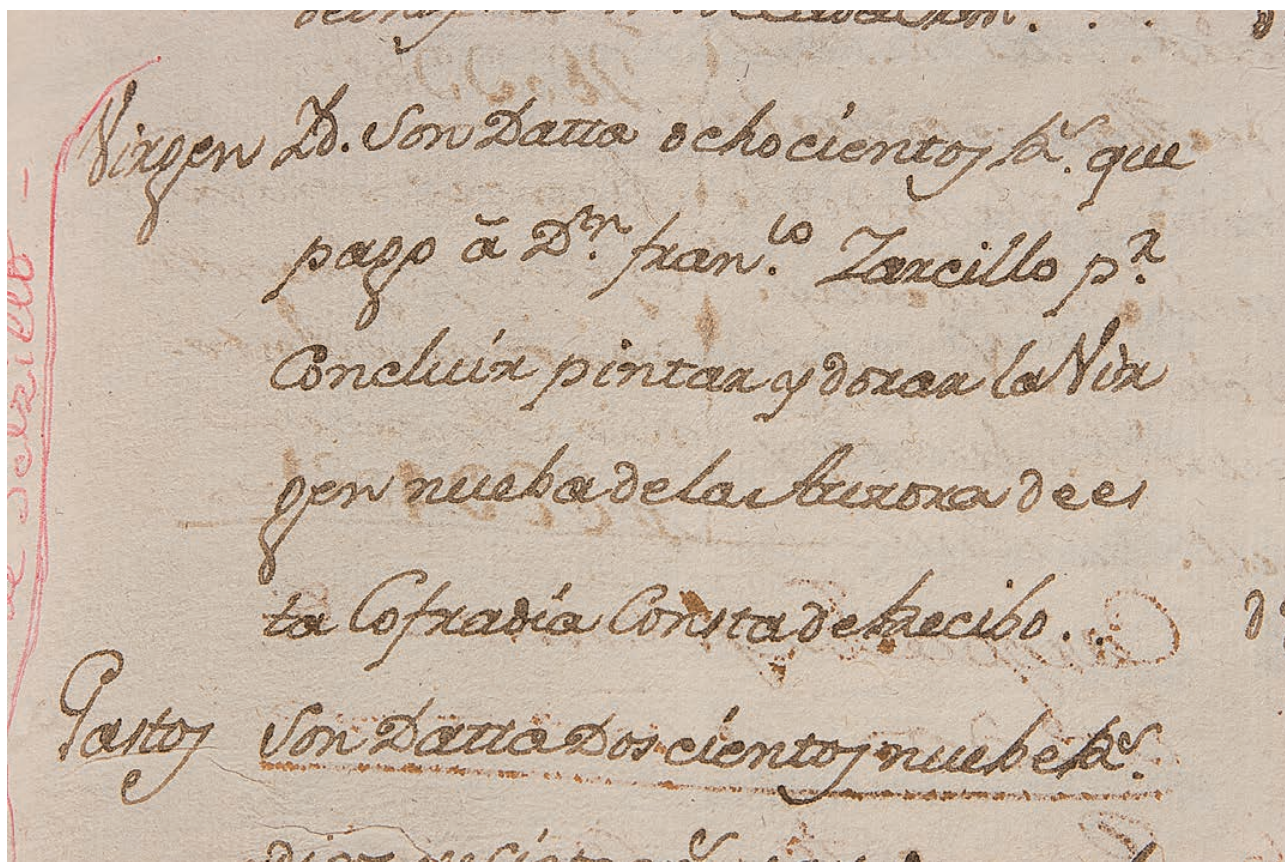 Virgen Yd. Son Datta ochocientos Rs. que
pago â Dn. franco. Zarcillo pr.
Concluir pintar y dorar la Vir
gen nueba de la Aurora de es
ta Cofradia Consta de Recibo..
Gastos Son Datta Doscientos nuebe Rs.